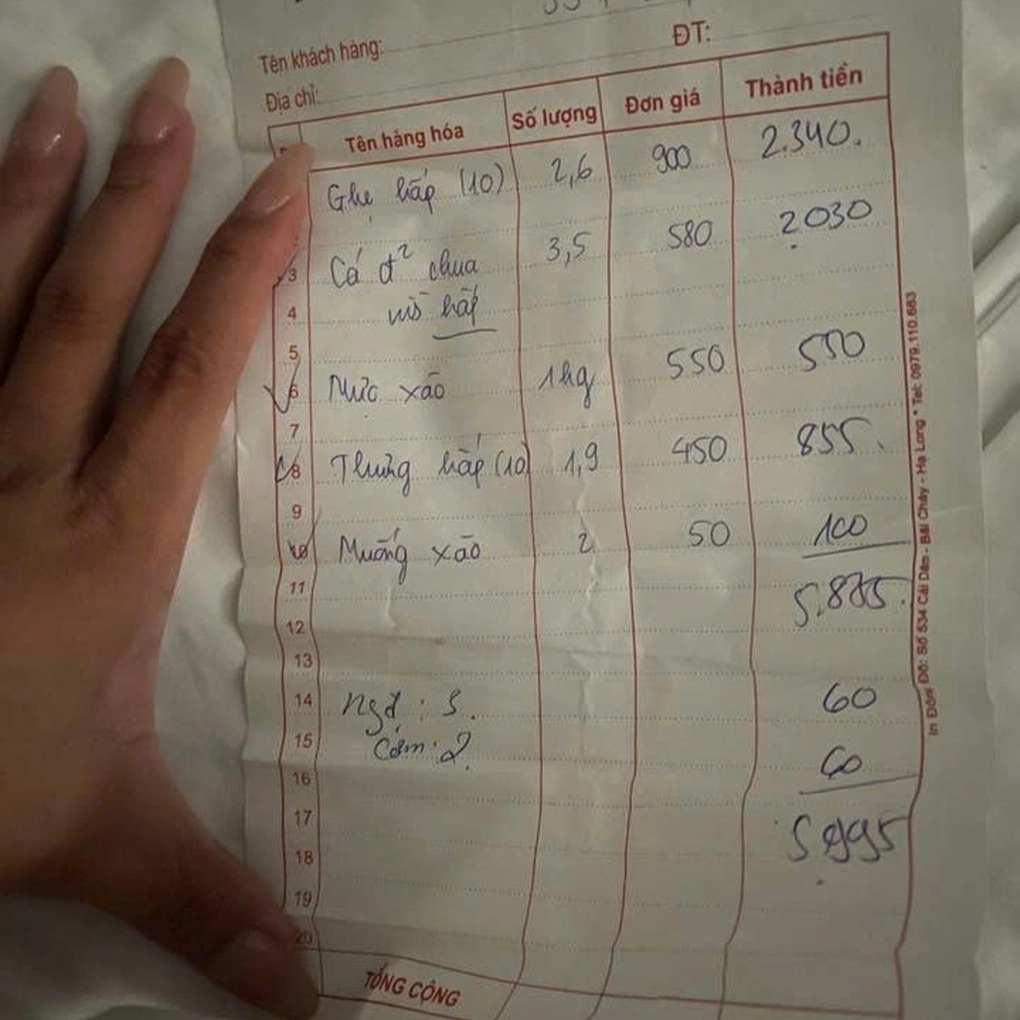 Tên khách hàng:
ĐT:
Địa chỉ:
Tên hàng hóa Số lượng Đơn giá Thành tiền
Ghẹ hấp (10) 2,6 900 2.340.
3 Cá đ² chua 3,5 580 2.030
4 vis hấp
5
6 Mực xào 1kg 550 550
7
8 Thưng hấp (10) 1,9 450 855.
9
10 Muống xào 2 50 100
11 5.875.
12
13
14 Ngđ: 3. 60
15 Cơm: 2. 60
16
17 5.995
18
19
20
TỔNG CỘNG
In Đông Đô: Số 534 Cái Dăm - Bãi Cháy - Hạ Long * Tel: 0979.110.683